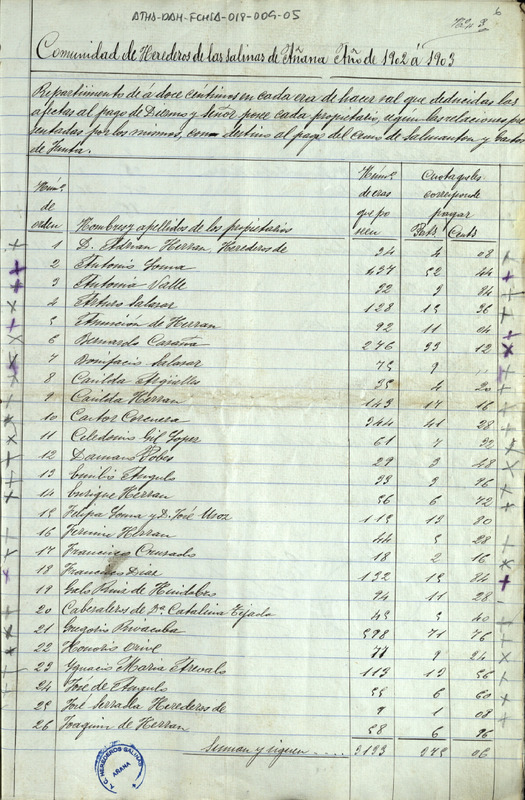 ATHA-DAH-FCHSA-018-009-05
6
Comunidad de Herederos de las Salinas de Añana Año de 1902 á 1903
Repartimiento de á doce céntimos en cada era de hacer sal que deducidas las
afectas al pago de Diezmo y Señor posee cada propietario, segun las relaciones pre-
sentadas por los mismos, con destino al pago del Censo de Salmanton y Gastos
de Junta.
Núm.º de orden Nombres y apellidos de los propietarios Núm.º de eras que poseen Cuota que les corresponde pagar Pts Cents
1 D. Adrian Herran, Herederos de 34 4 08
2 Antonio 437 52 44
3 Antonia Valle 82 9 84
4 Arturo Salazar 128 15 36
5 Asunción de Herran 92 11 04
6 Bernardo Caraña 276 33 12
7 Bonifacio Salazar 75 9 "
8 Casilda Argüelles 35 4 20
9 Casilda Herran 143 17 16
10 Castor Corcuera 344 41 28
11 Celedonio Gil Lopez 61 7 32
12 Damaso Pobes 29 3 48
13 Emilio Angulo 33 3 96
14 Enrique Herran 56 6 72
15 Felipa y D. José Uroz 115 13 80
16 Fermin Herran 44 5 28
17 Francisco 18 2 16
18 Francisco Diaz 132 15 84
19 Ruiz de 94 11 28
20 Cabezaleros de D.ª Catalina Tejada 45 5 40
21 Gregorio Rivacoba 598 71 76
22 Honorio Orive 77 9 24
23 Ygnacio Maria Arevalo 113 13 56
24 José de Angulo 55 6 60
25 José Serralla Herederos de 9 1 08
26 Joaquin de Herran 58 6 96
Suman y siguen
A.C. HEREDEROS SALINAS AÑANA